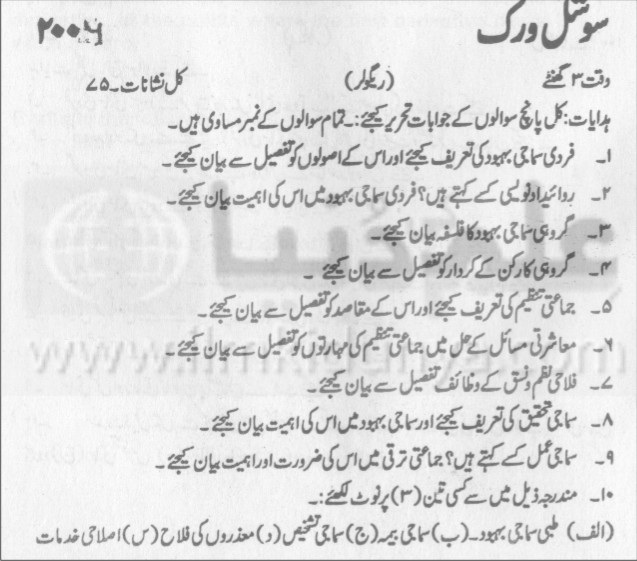 سوشل ورک ۲۰۰۶ء
وقت ۳ گھنٹے (ریگولر) کل نشانات۔ ۷۵
ہدایات: کل پانچ سوالوں کے جوابات تحریر کیجئے:۔ تمام سوالوں کے نمبر مساوی ہیں۔
۱۔ فردی سماجی بہبود کی تعریف کیجئے اور اس کے اصولوں کو تفصیل سے بیان کیجئے۔
۲۔ روائیداد نویسی کسے کہتے ہیں؟ فردی سماجی بہبود میں اس کی اہمیت بیان کیجئے۔
۳۔ گروہی سماجی بہبود کا فلسفہ بیان کیجئے۔
۴۔ گروہی کارکن کے کردار کو تفصیل سے بیان کیجئے ۔
۵۔ جماعتی تنظیم کی تعریف کیجئے اور اس کے مقاصد کو تفصیل سے بیان کیجئے۔
۶۔ معاشرتی مسائل کے حل میں جماعتی تنظیم کی مہارتوں کو تفصیل سے بیان کیجئے ۔
۷۔ فلاحی نظم و نسق کے وظائف تفصیل سے بیان کیجئے۔
۸۔ سماجی تحقیق کی تعریف کیجئے اور سماجی بہبود میں اس کی اہمیت بیان کیجئے ۔
۹۔ سماجی عمل کسے کہتے ہیں؟ جماعتی ترقی میں اس کی ضرورت اور اہمیت بیان کیجئے۔
۱۰۔ مندرجہ ذیل میں سے کسی تین (۳) پر نوٹ لکھئے:۔
(الف) طبی سماجی بہبود۔ (ب) سماجی بیمہ (ج) سماجی تشخیص (د) معذروں کی فلاح (س) اصلاحی خدمات
علم کی دنیا
www.ilmkidunya.com